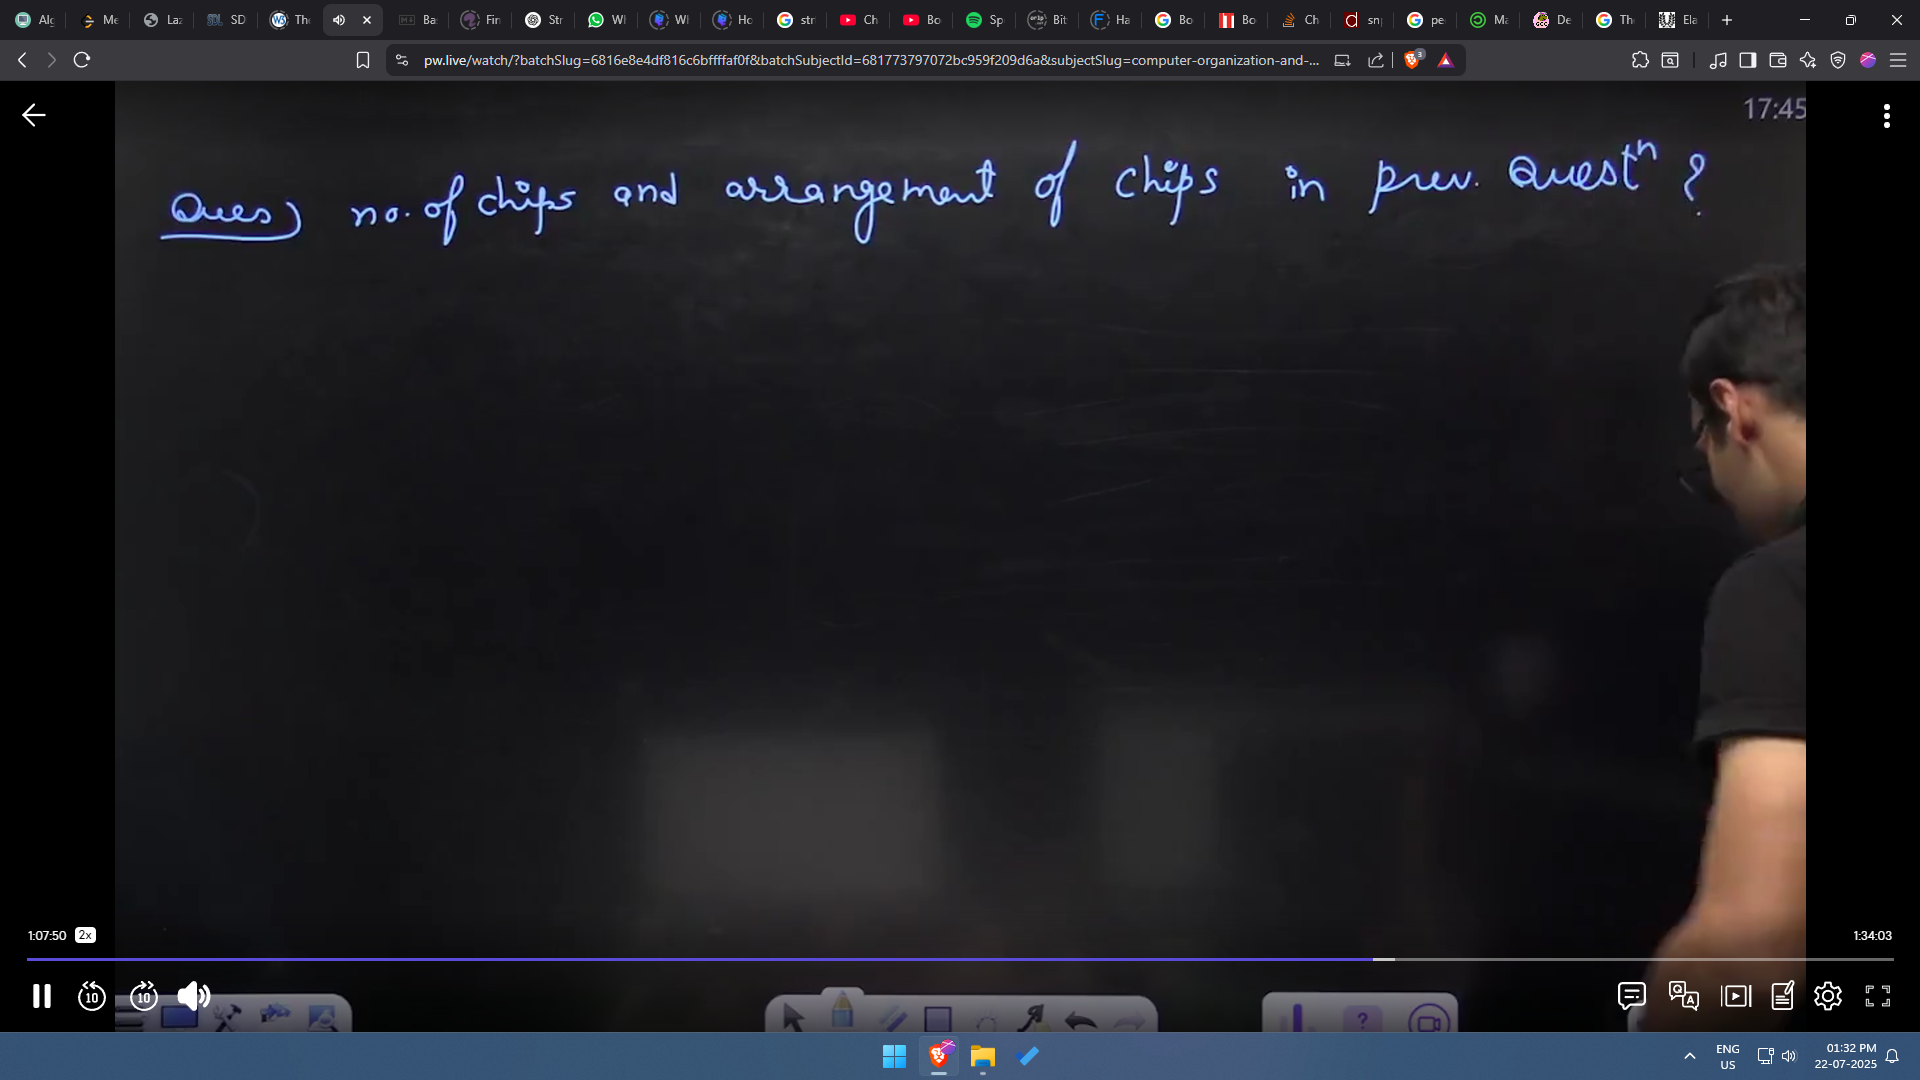 Alg
Me
Laz
SD
The
Ba
Fin
Str
Wh
Wh
Ho
str
Ch
Bo
Sp
Bit
Ha
Bo
Bo
Ch
sn
pe
Ma
De
The
Ela
pw.live/watch/?batchSlug=6816e8e4df816c6bffffaf0f&batchSubjectId=681773797072bc959f209d6a&subjectSlug=computer-organization-and-...
3
17:45
Ques) no. of chips and arrangement of chips in prev. Questn ?
1:07:50 2x
1:34:03
10
10
Q A
?
ENG
US
01:32 PM
22-07-2025